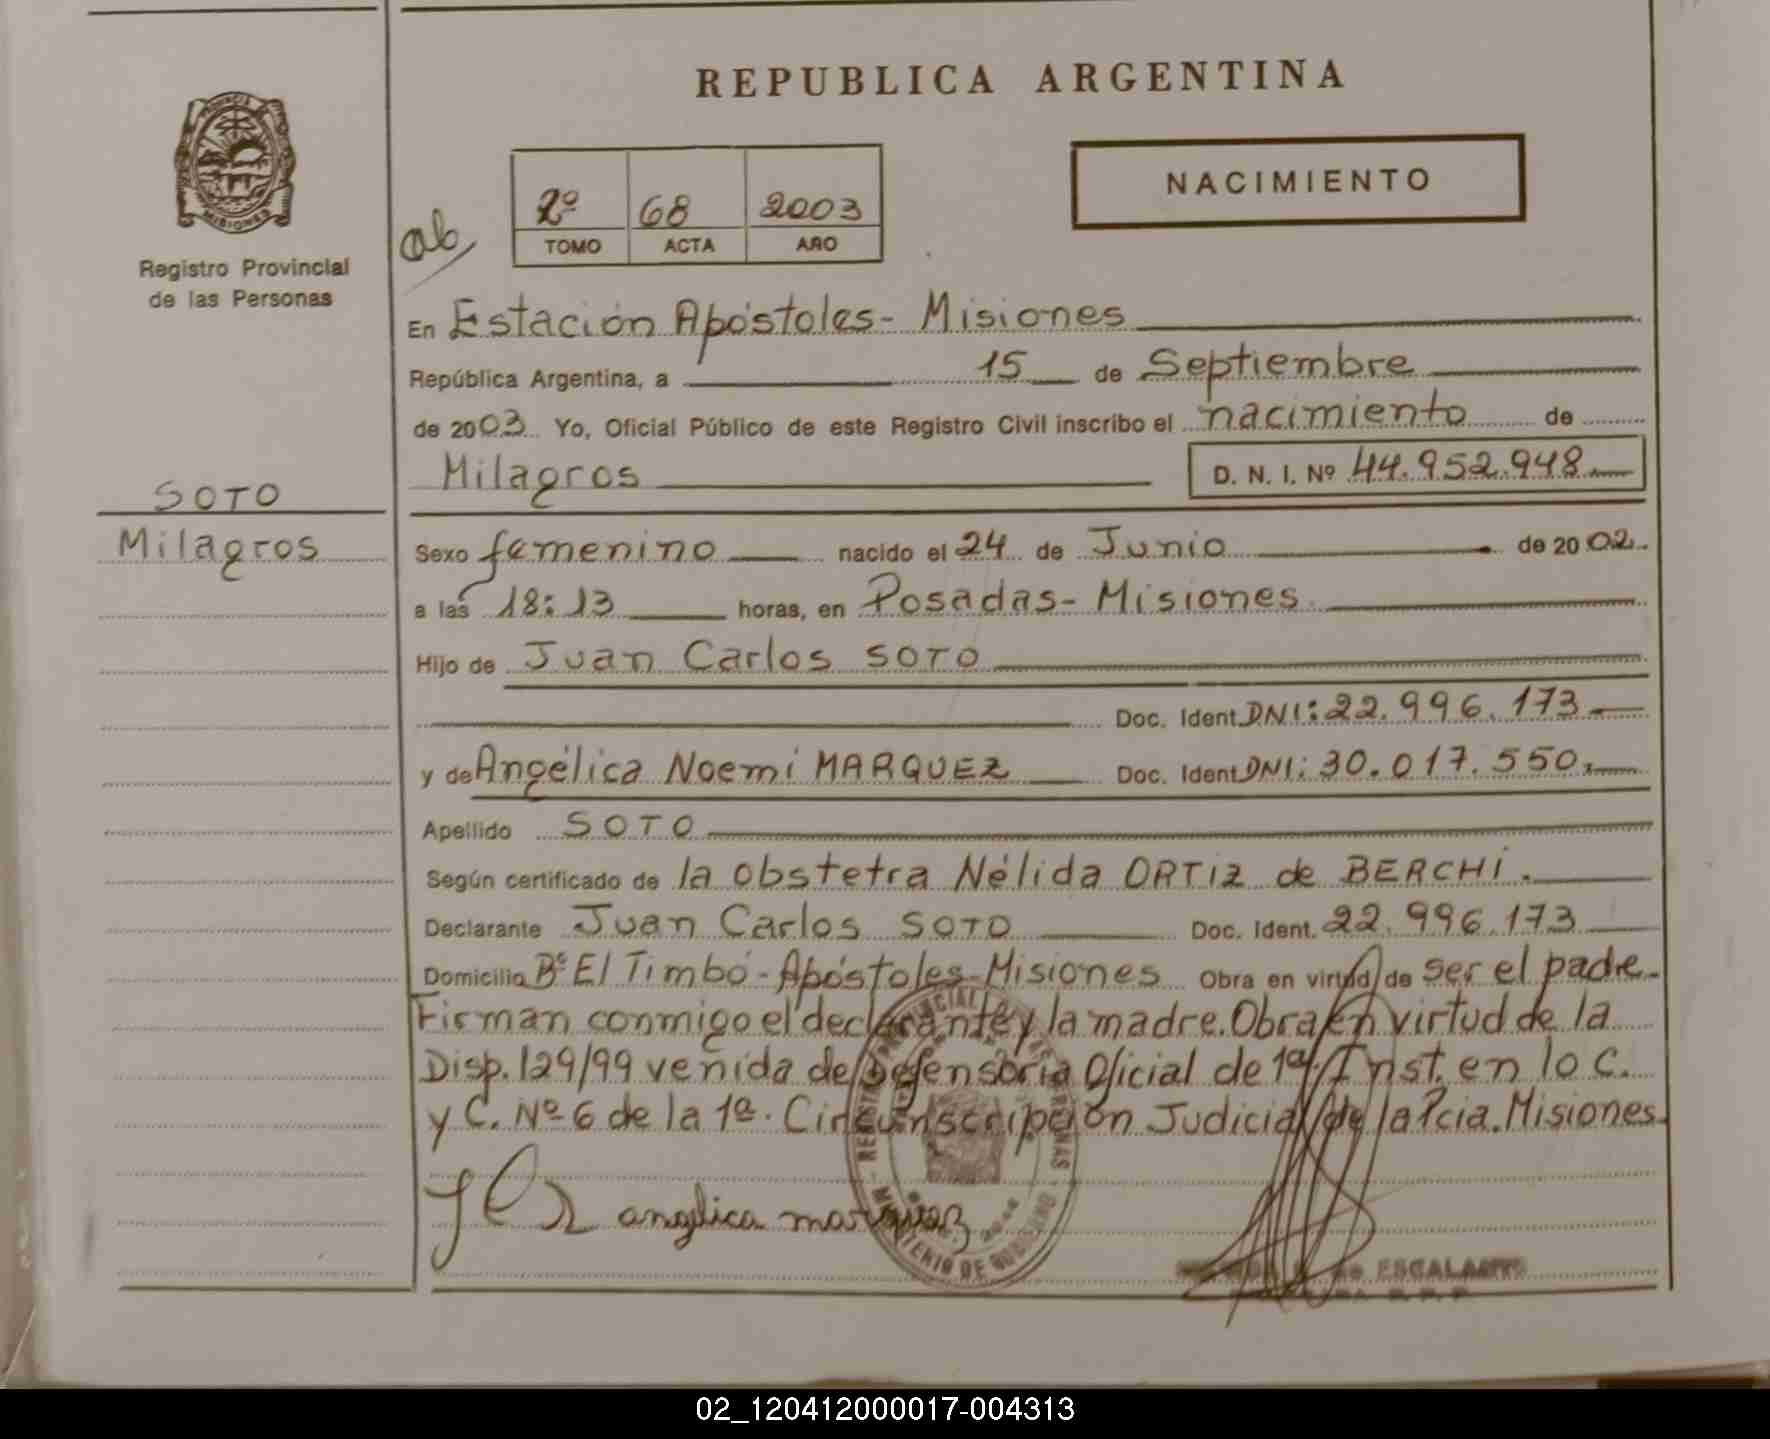 REPUBLICA ARGENTINA
PROVINCIA
MISIONES
Registro Provincial
de las Personas
ab
2º 68 2003
TOMO ACTA AÑO
NACIMIENTO
En Estación Apóstoles - Misiones
República Argentina, a 15 de Septiembre
de 2003 Yo, Oficial Público de este Registro Civil inscribo el nacimiento de
Milagros D. N. I. Nº 44.952.948
SOTO
Milagros
Sexo femenino nacido el 24 de Junio de 2002
a las 18:13 horas, en Posadas - Misiones
Hijo de Juan Carlos SOTO
Doc. Ident. DNI: 22.996.173
y de Angélica Noemí MARQUEZ Doc. Ident. DNI: 30.017.550
Apellido SOTO
Según certificado de la obstetra Nélida ORTIZ de BERCHI.
Declarante Juan Carlos SOTO Doc. Ident. 22.996.173
Domicilio Bº El Timbó - Apóstoles - Misiones Obra en virtud de ser el padre
Firman conmigo el declarante y la madre. Obra en virtud de la
Disp. 129/99 venida de Defensoria Oficial de 1ª Inst. en lo C.
y C. Nº 6 de la 1ª. Circunscripción Judicial de la Pcia. Misiones
angelica marquez
MINISTERIO DE GOBIERNO
de ESCALANTE
02_120412000017-004313